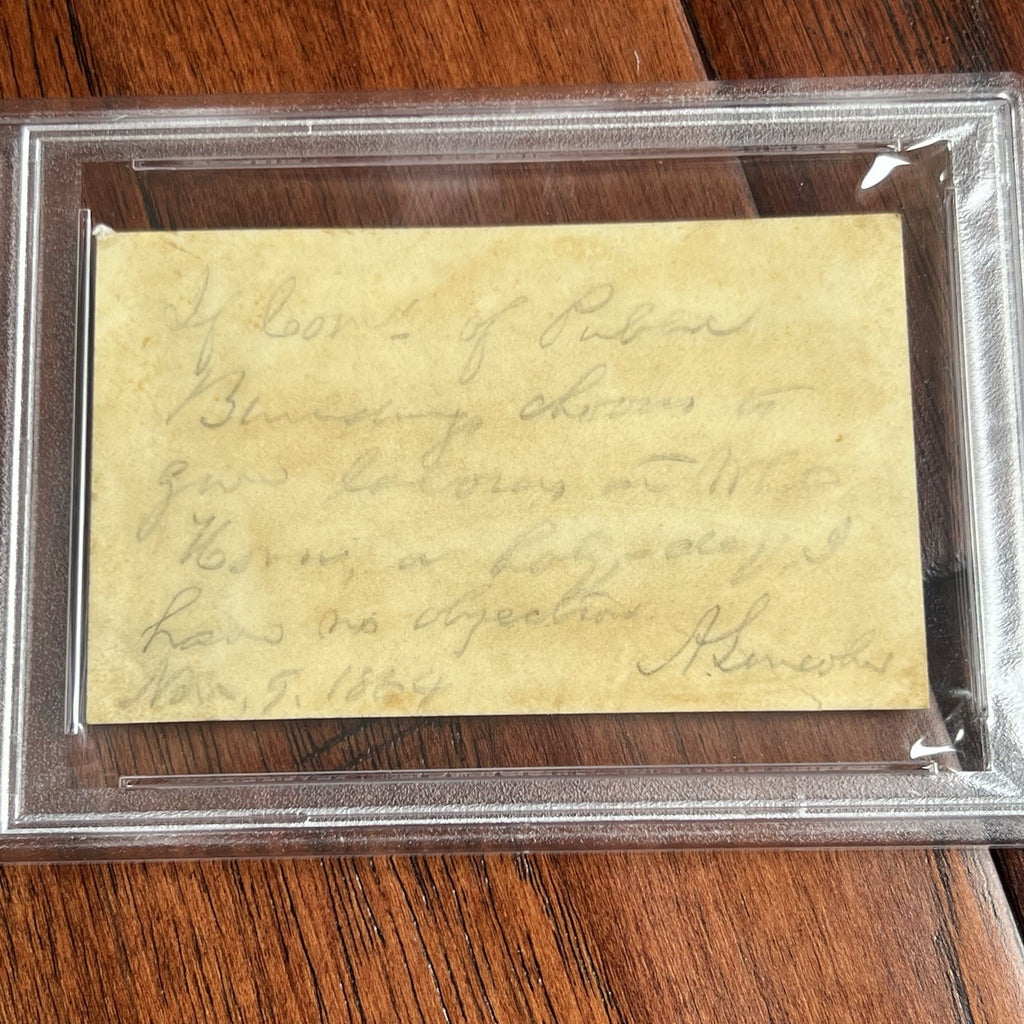 If Com.r of Public
Buildings chooses to
give laborers at White
House, a holy-day, I
have no objection
A. Lincoln
Nov. 9, 1864